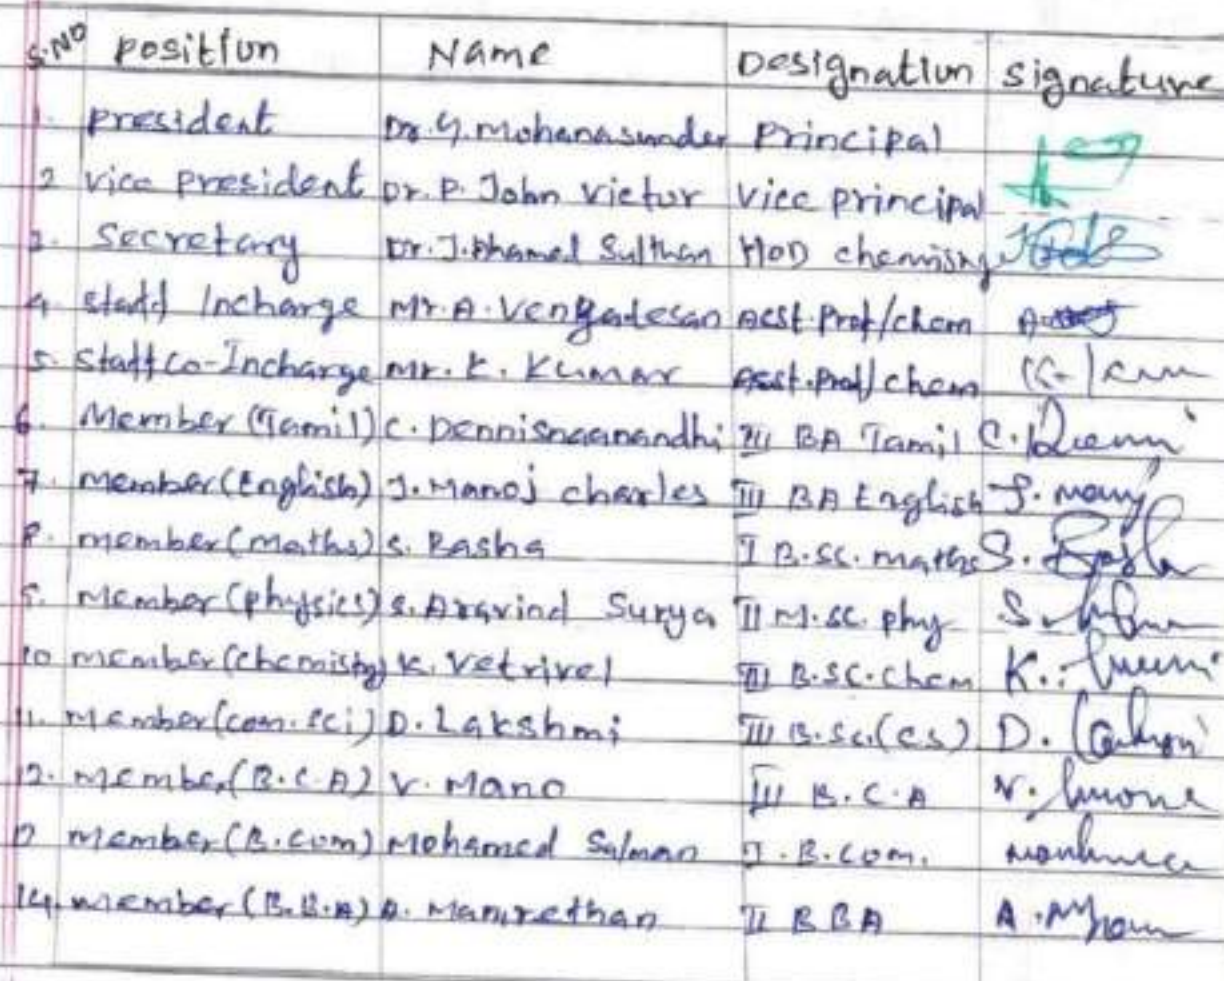 S.NO Position Name Designation Signature
1. President Dr. G. Mohanasunder Principal
2 Vice President Dr. P. John Victor Vice Principal
3. Secretary Dr. J. Sulthan HOD chemistry
4. Staff Incharge Mr. A. Vengadesan Asst. Prof/chem
5. Staff Co-Incharge Mr. K. Kumar Asst. Prof/chem
6. Member (Tamil) C. Dennisnaanandhi III BA Tamil C.
7. member (English) J. Manoj charles III BA English J.
8. member (maths) S. Basha I B.Sc. maths S. Basha
9. Member (physics) S. Aravind Surya II M.Sc. phy S.
10 member (chemistry) K. Vetrivel III B.SC. Chem K.
11. Member (com. sci) D. Lakshmi III B.Sc. (cs) D.
12. member (B.C.A) V. Mano III B.C.A V.
member (B.com) Mohamed Salman I. B.com.
14. member (B.B.A) A. II BBA A.